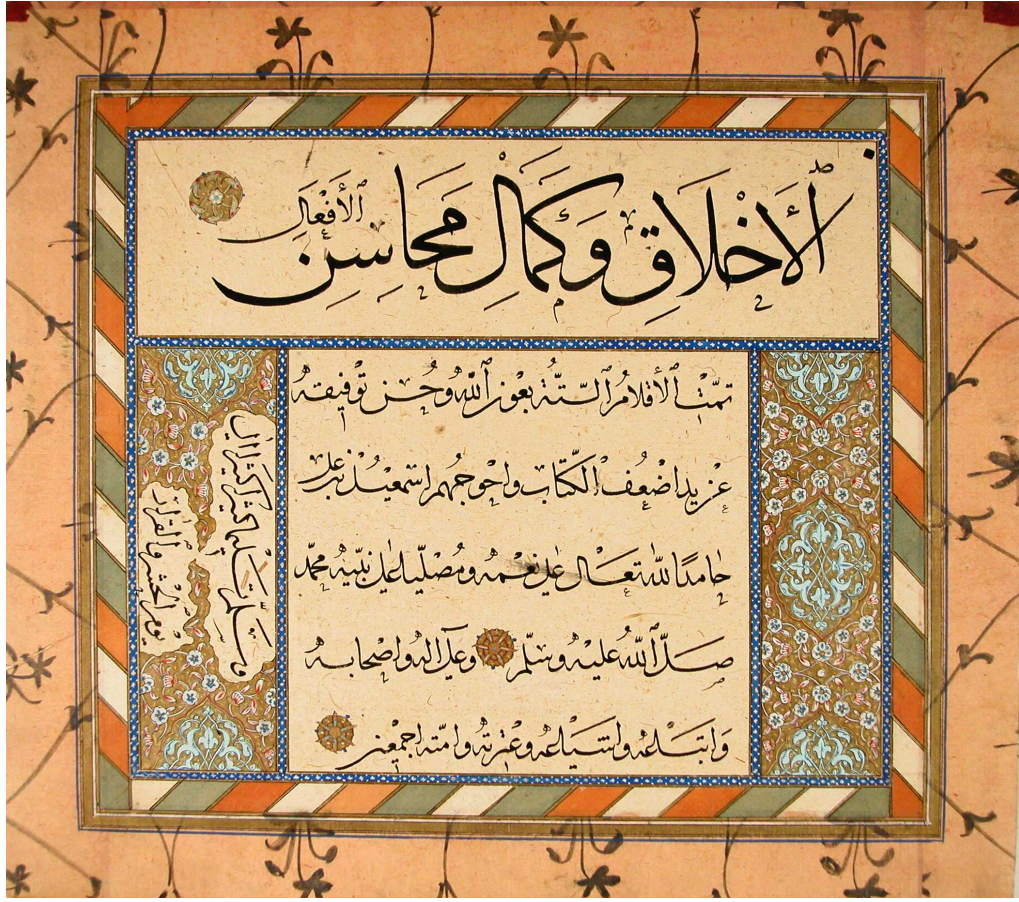 الأخلاق وكمال محاسن الأفعال
تمت الأقلام الستة بعون الله وحسن توفيقه
عن يد اضعف الكتاب واحوجهم اسمعيل بن علی
حامدا لله تعالى على نعمه ومصليا على نبيه محمد
صلى الله عليه وسلم وعلى اله واصحابه
واتباعه واشياعه وعترته وامته اجمعين
وسلم تسليما كثيرا كثيرا الى
يوم الحشر والقرار